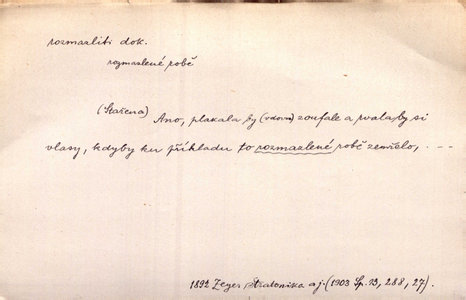 rozmazliti dok.
rozmazlené robě
(Stařena) Ano, plakala by (vdova) zoufale a rvala by si
vlasy, kdyby ku příkladu to rozmazlené robě zemřelo, . --
1892 Zeyer Stratonika a j. (1903 Sp. 23, 288, 27)